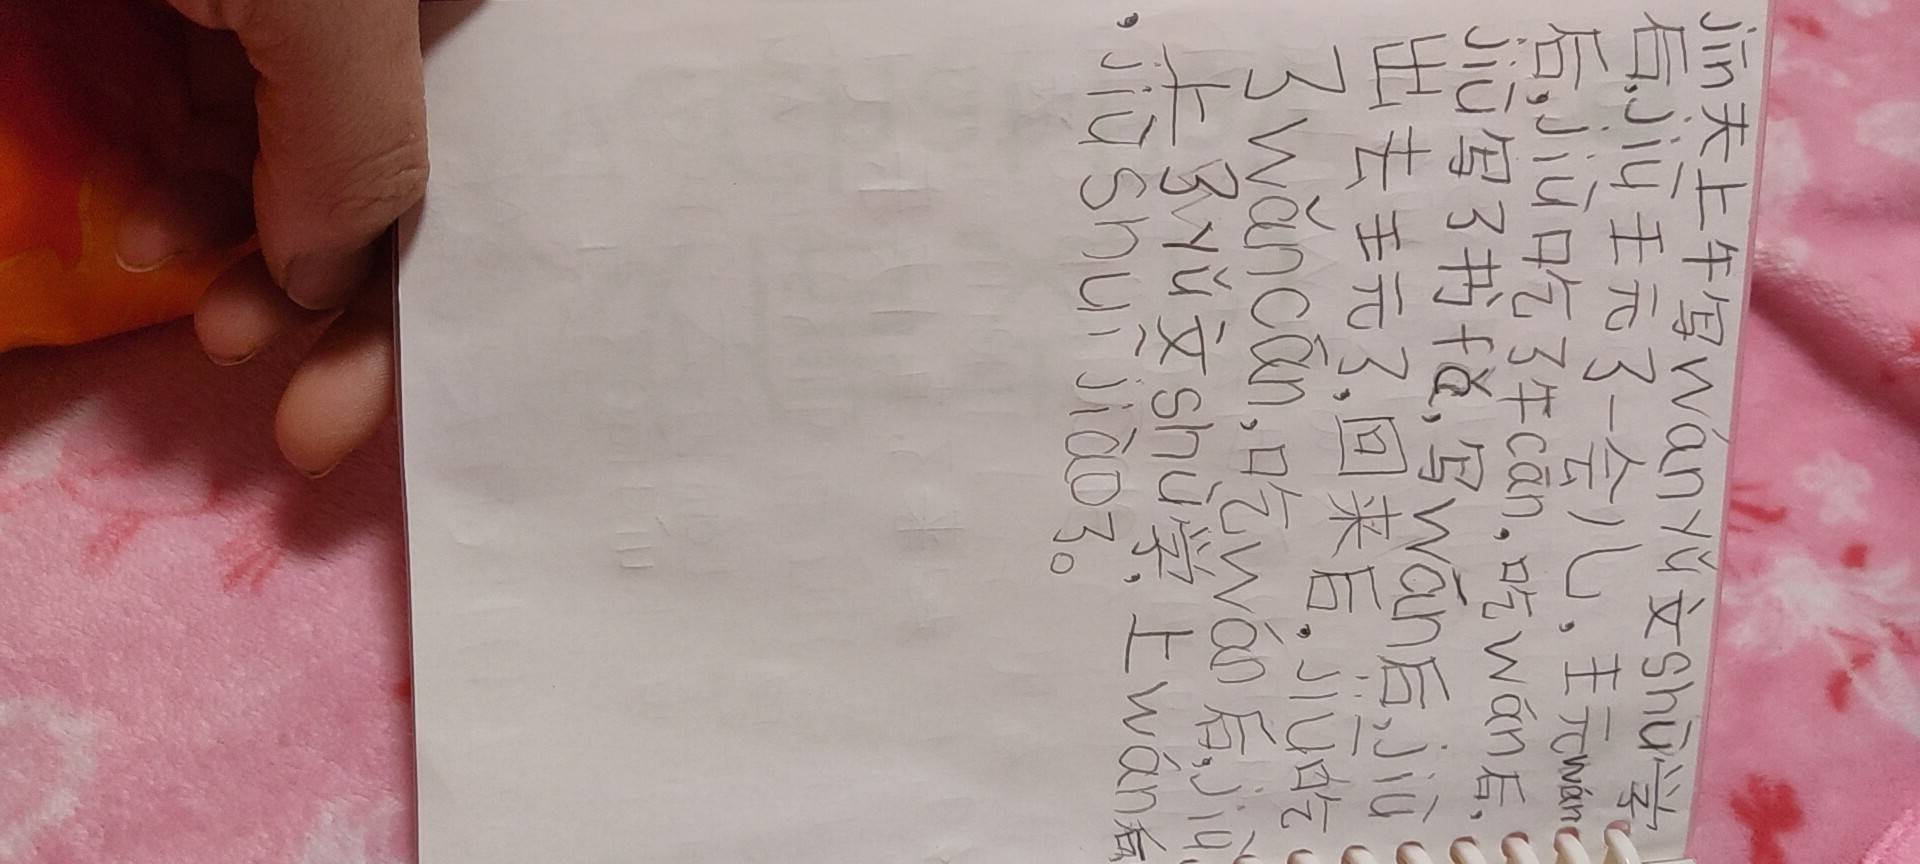 jīn天上午写wányǔ文shù学
后,jiù王元了一会儿,王元wán
后,jiù吃了午cān,吃wán后,
jiù写了书fǎ,写wán后,jiù
出去王元了,回来后,jiù吃
了wǎncān,吃wán后,jiù
上了yǔ文shù学,上wán后
,jiù shuì jiào了。